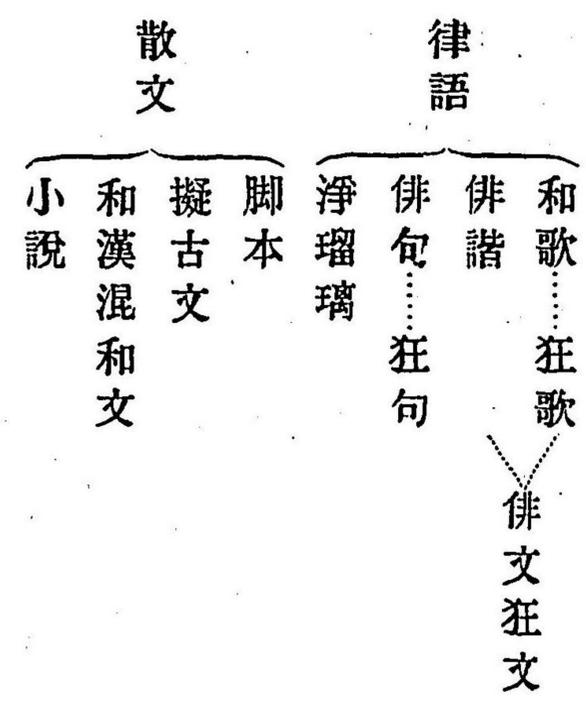 律語
和歌……狂歌
俳諧
俳句……狂句
淨瑠璃
俳文狂文
散文
脚本
擬古文
和漢混和文
小說